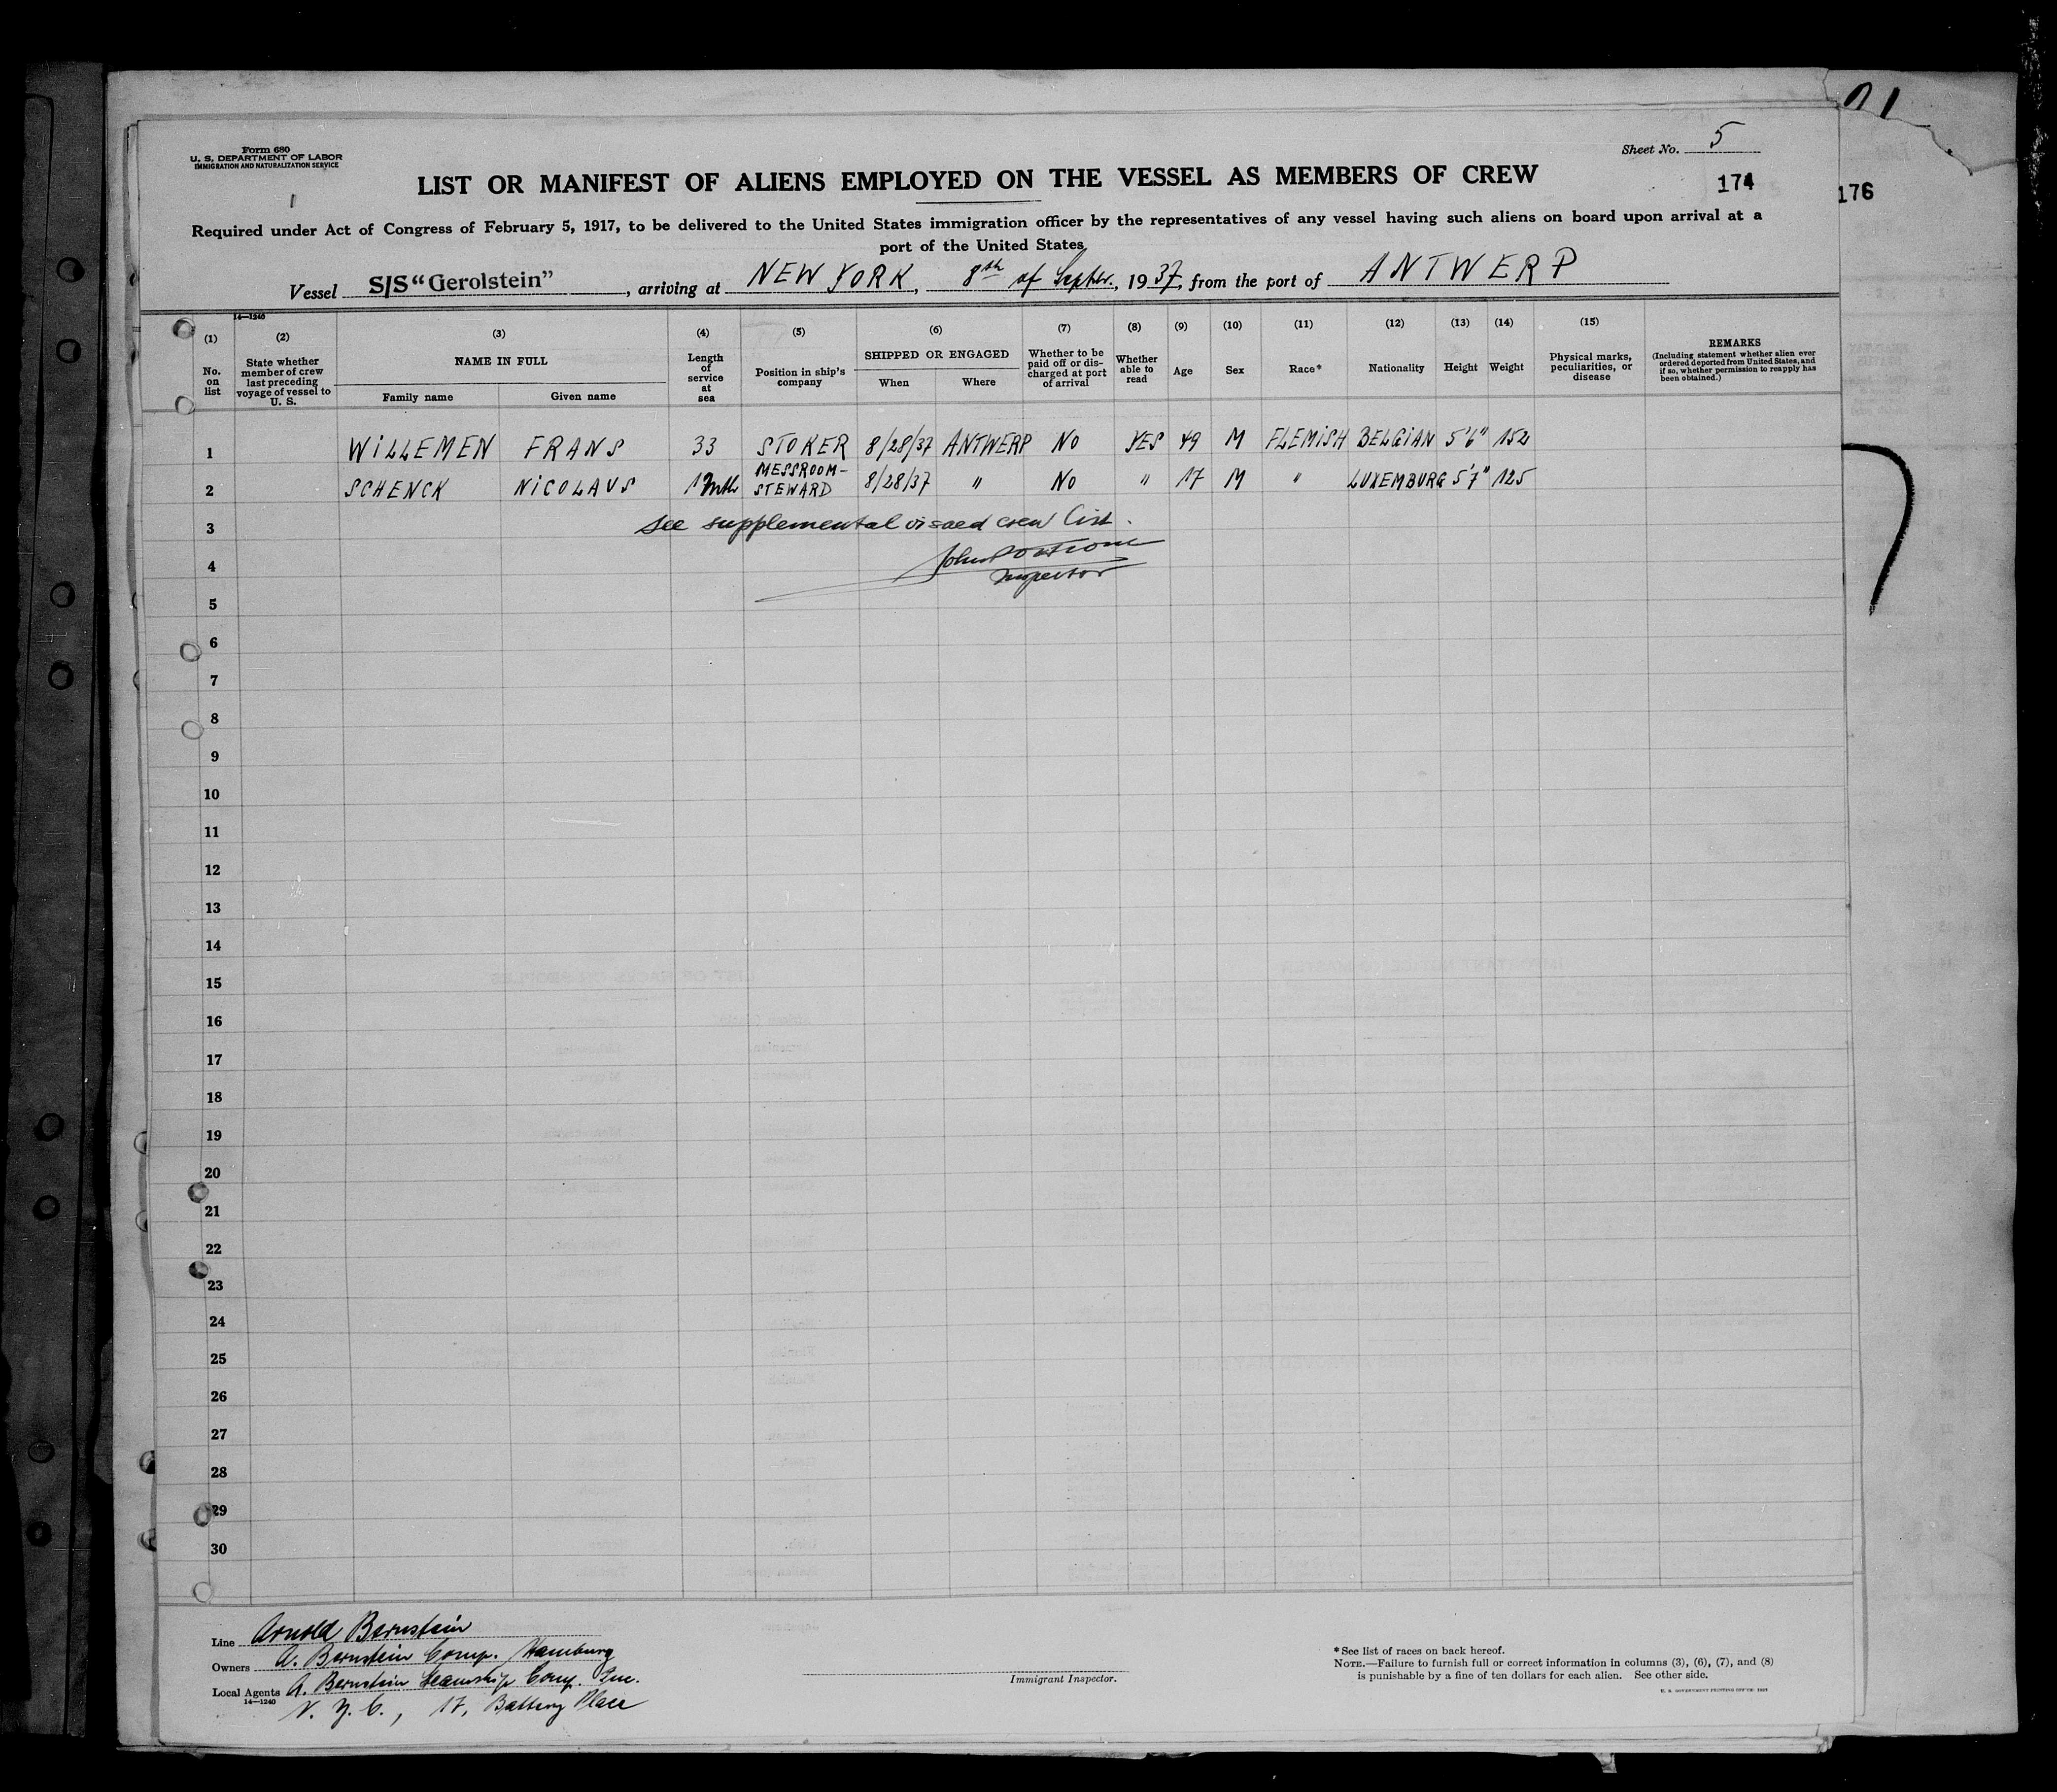 Form 680
U. S. DEPARTMENT OF LABOR
IMMIGRATION AND NATURALIZATION SERVICE
Sheet No. 5
LIST OR MANIFEST OF ALIENS EMPLOYED ON THE VESSEL AS MEMBERS OF CREW
174
176
Required under Act of Congress of February 5, 1917, to be delivered to the United States immigration officer by the representatives of any vessel having such aliens on board upon arrival at a
port of the United States
Vessel S/S “Gerolstein”, arriving at NEW YORK, 8th of Septbr., 1937, from the port of ANTWERP
14—1240
(1) No. on list
(2) State whether member of crew last preceding voyage of vessel to U. S.
(3) NAME IN FULL
Family name Given name
(4) Length of service at sea
(5) Position in ship's company
(6) SHIPPED OR ENGAGED
When Where
(7) Whether to be paid off or discharged at port of arrival
(8) Whether able to read
(9) Age
(10) Sex
(11) Race*
(12) Nationality
(13) Height
(14) Weight
(15) Physical marks, peculiarities, or disease
REMARKS
(Including statement whether alien ever ordered deported from United States, and if so, whether permission to reapply has been obtained.)
1 WILLEMEN FRANS 33 STOKER 8/28/37 ANTWERP NO YES 49 M FLEMISH BELGIAN 5'6" 152
2 SCHENCK NICOLAUS 1 Mth MESSROOM-STEWARD 8/28/37 " NO " 17 M " LUXEMBURG 5'7" 125
3 see supplemental visaed crew list.
4 Inspector
5
6
7
8
9
10
11
12
13
14
15
16
17
18
19
20
21
22
23
24
25
26
27
28
29
30
Line Arnold Bernstein
Owners A. Bernstein Comp. Hamburg
Local Agents A. Bernstein Steamship Comp. Inc.
14—1240
N. Y. C., 17, Battery Place
Immigrant Inspector.
*See list of races on back hereof.
NOTE.—Failure to furnish full or correct information in columns (3), (6), (7), and (8)
is punishable by a fine of ten dollars for each alien. See other side.